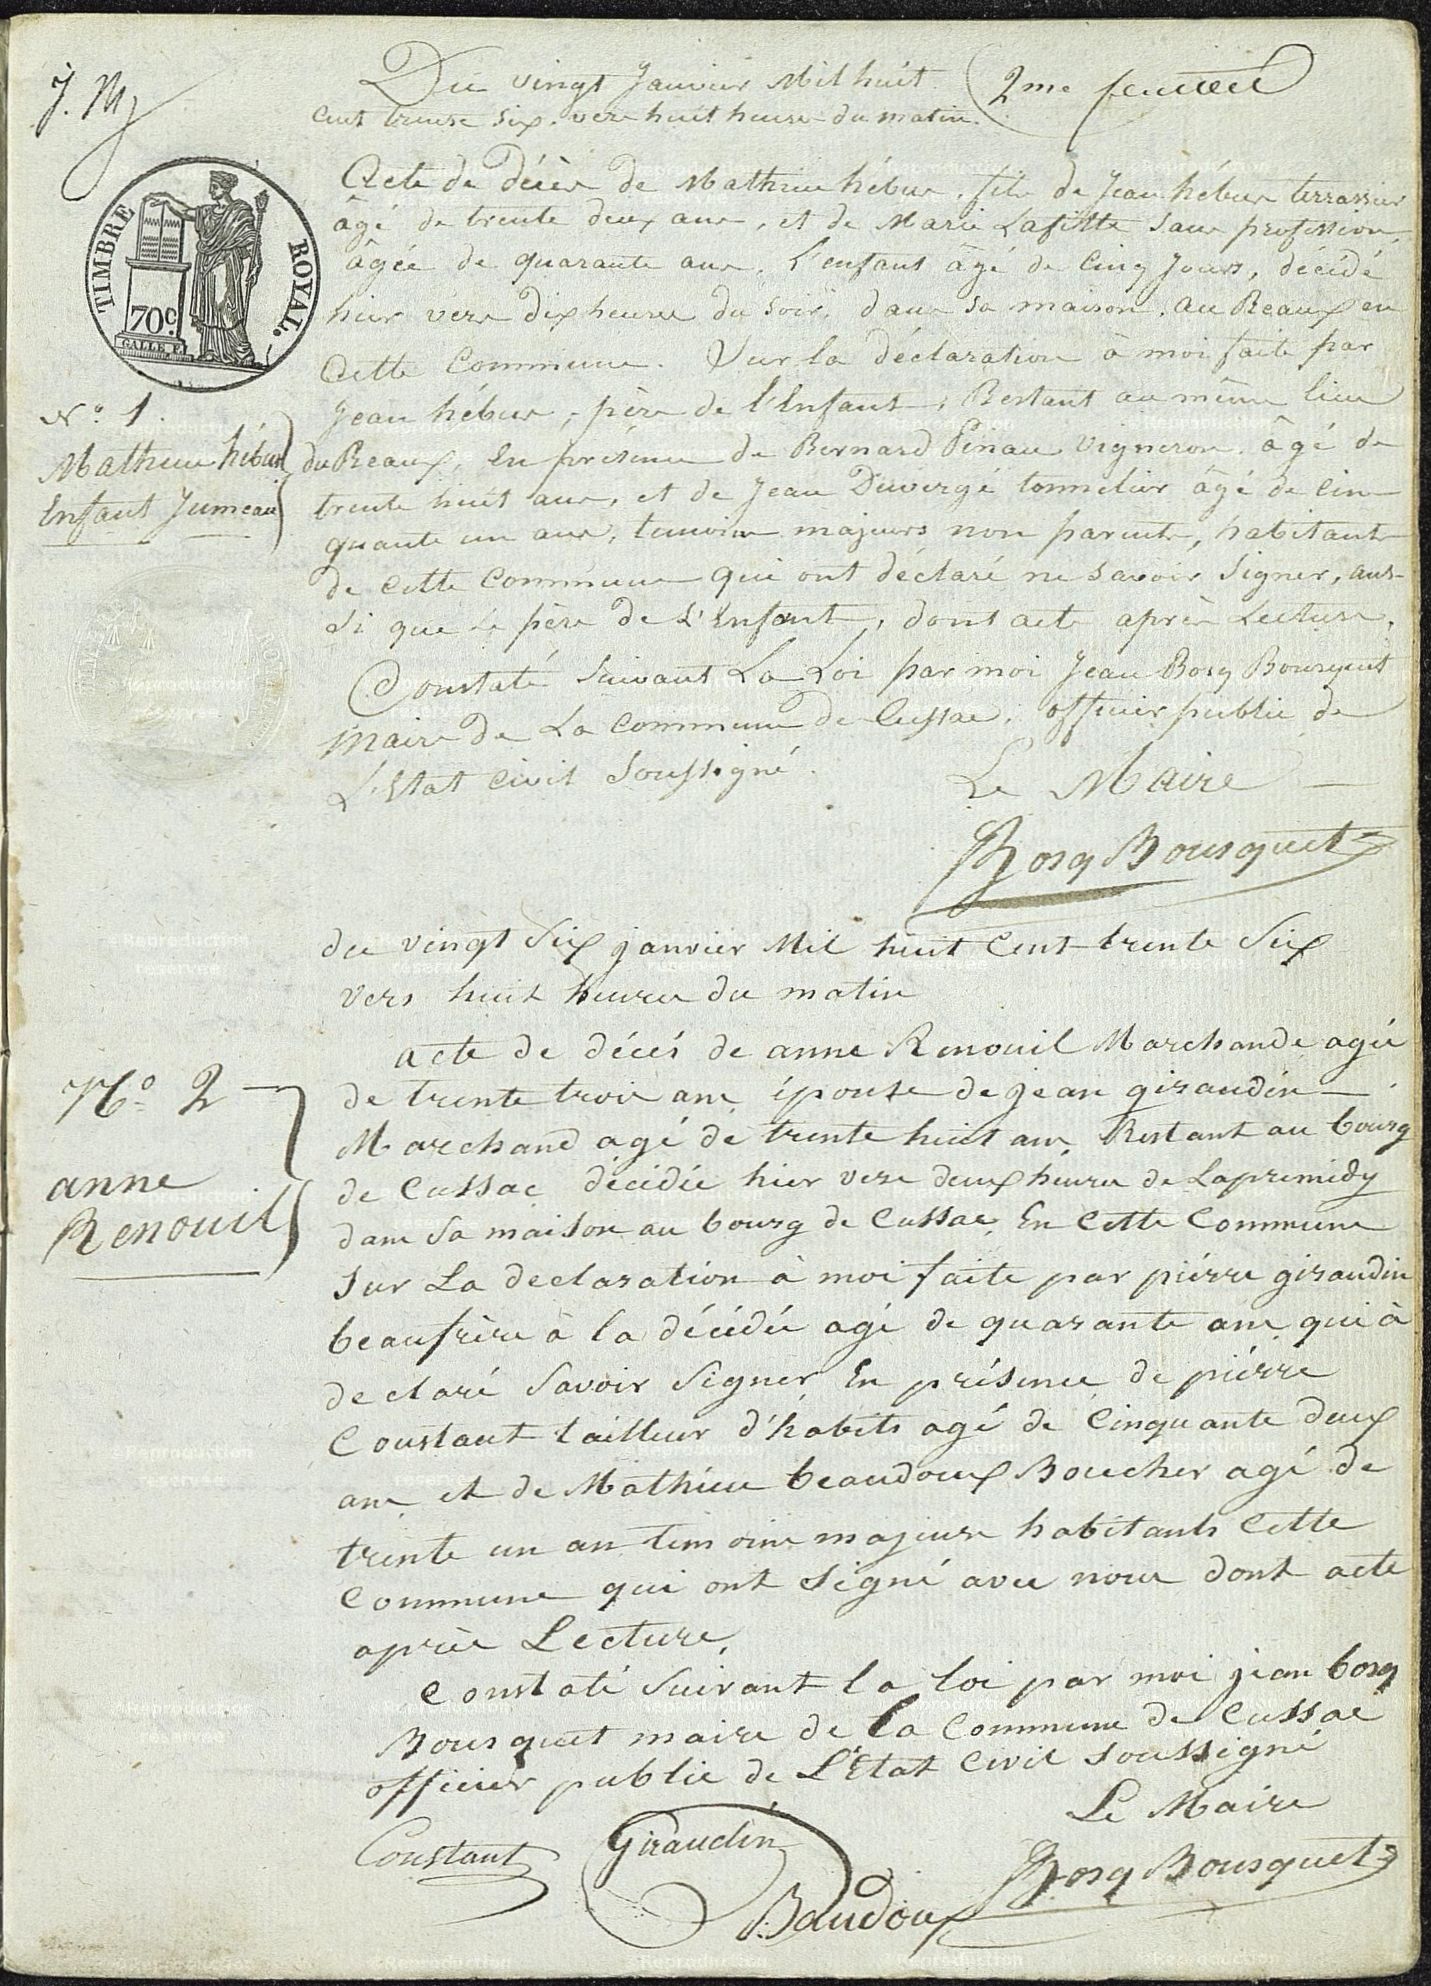 J. M
Du vingt Janvier Mil huit
2me feuillet
cent trente Six. vers huit heures du matin.
TIMBRE ROYAL.
70c.
GALLE F.
Acte de Décès de Mathieu hébus, fils de Jean hébus terrassier
âgé de trente deux ans, et de Marie Lafitte Sans profession,
âgée de quarante ans. L'enfant âgé de Cinq Jours, décédé
hier vers dix heures du Soir, dans sa maison, au Reaux en
Cette Commune. Sur la déclaration à moi faite par
Jean hébus, père de l'Enfant, Restant au même lieu
du Reaux, En présence de Bernard Pinau Vigneron âgé de
trente huit ans, et de Jean Duvergé tonnelier âgé de Cin-
quante un ans, temoins majeurs non parents, habitants
de Cette Commune qui ont déclaré ne Savoir Signer, aus-
Si que Le père de L'Enfant, dont acte après Lecture.
Constaté Suivant La Loi par moi Jean Bosq Bousquet
Maire de La Commune de Cussac, officier public de
L'Etat Civil Soussigné.
Le Maire
Bosq Bousquet
N.o 1.
Mathieu hébus
Enfant Jumeau
du vingt Six janvier Mil huit Cent trente Six
vers huit heures du matin
N.o 2
anne
Renouil
acte de décés de anne Renouil Marchande agée
de trente trois ans épouse de jean giraudin
Marchand agé de trente huit ans Restant au bourg
de Cussac décédée hier vers deux heures de Lapremidy
dans Sa maison au bourg de Cussac En Cette Commune
Sur La declaration à moi faite par pièrre giraudin
beaufrère à la décédée agé de quarante ans qui à
declaré Savoir Signer En présence de pièrre
Constant tailleur d'habits agé de Cinquante deux
ans et de Mathieu beaudoux Boucher agé de
trente un an temoins majeurs habitants Cette
Commune qui ont Signé avec nous dont acte
après Lecture,
Constaté Suivant la loi par moi jean bosq
Bousquet maire de la Commune de Cussac
officier public de L'Etat Civil Soussigné
Le Maire
Constant
Giraudin
Baudoux
Bosq Bousquet